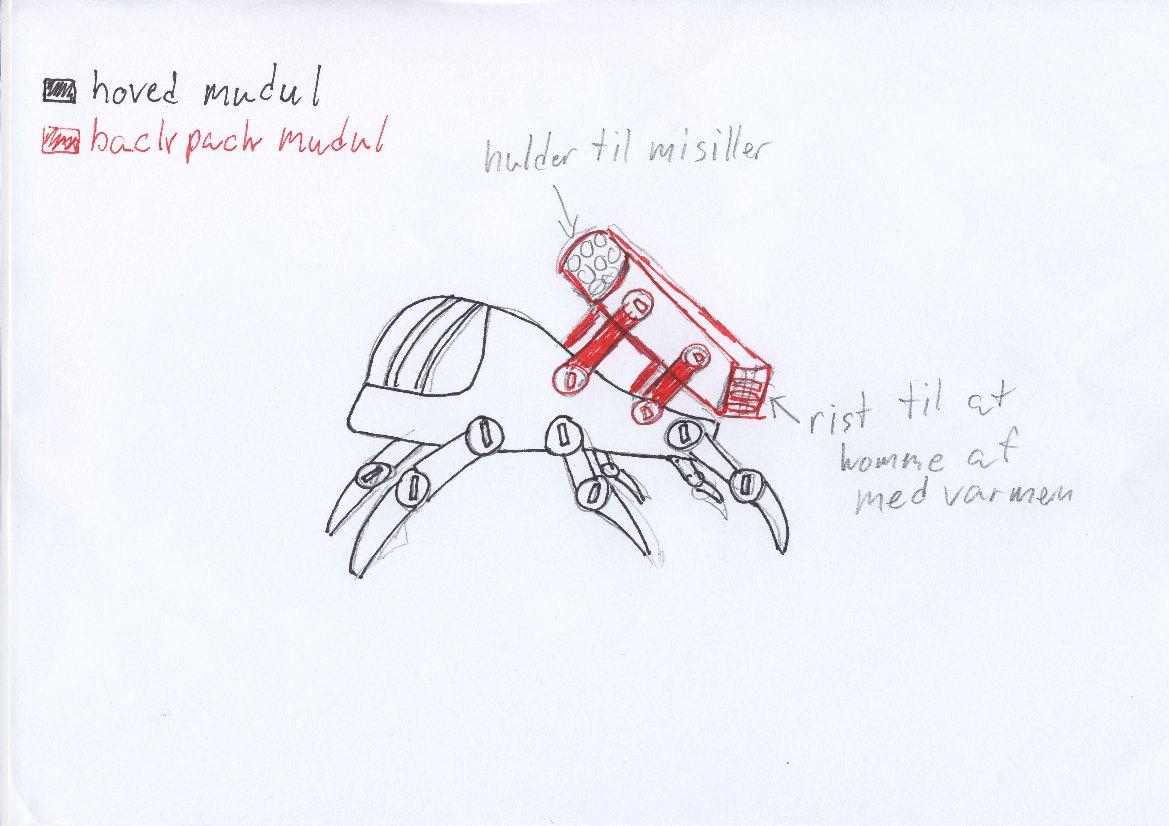 hoved mudul
backpack mudul
hulder til misiller
rist til at
komme af
med varmen